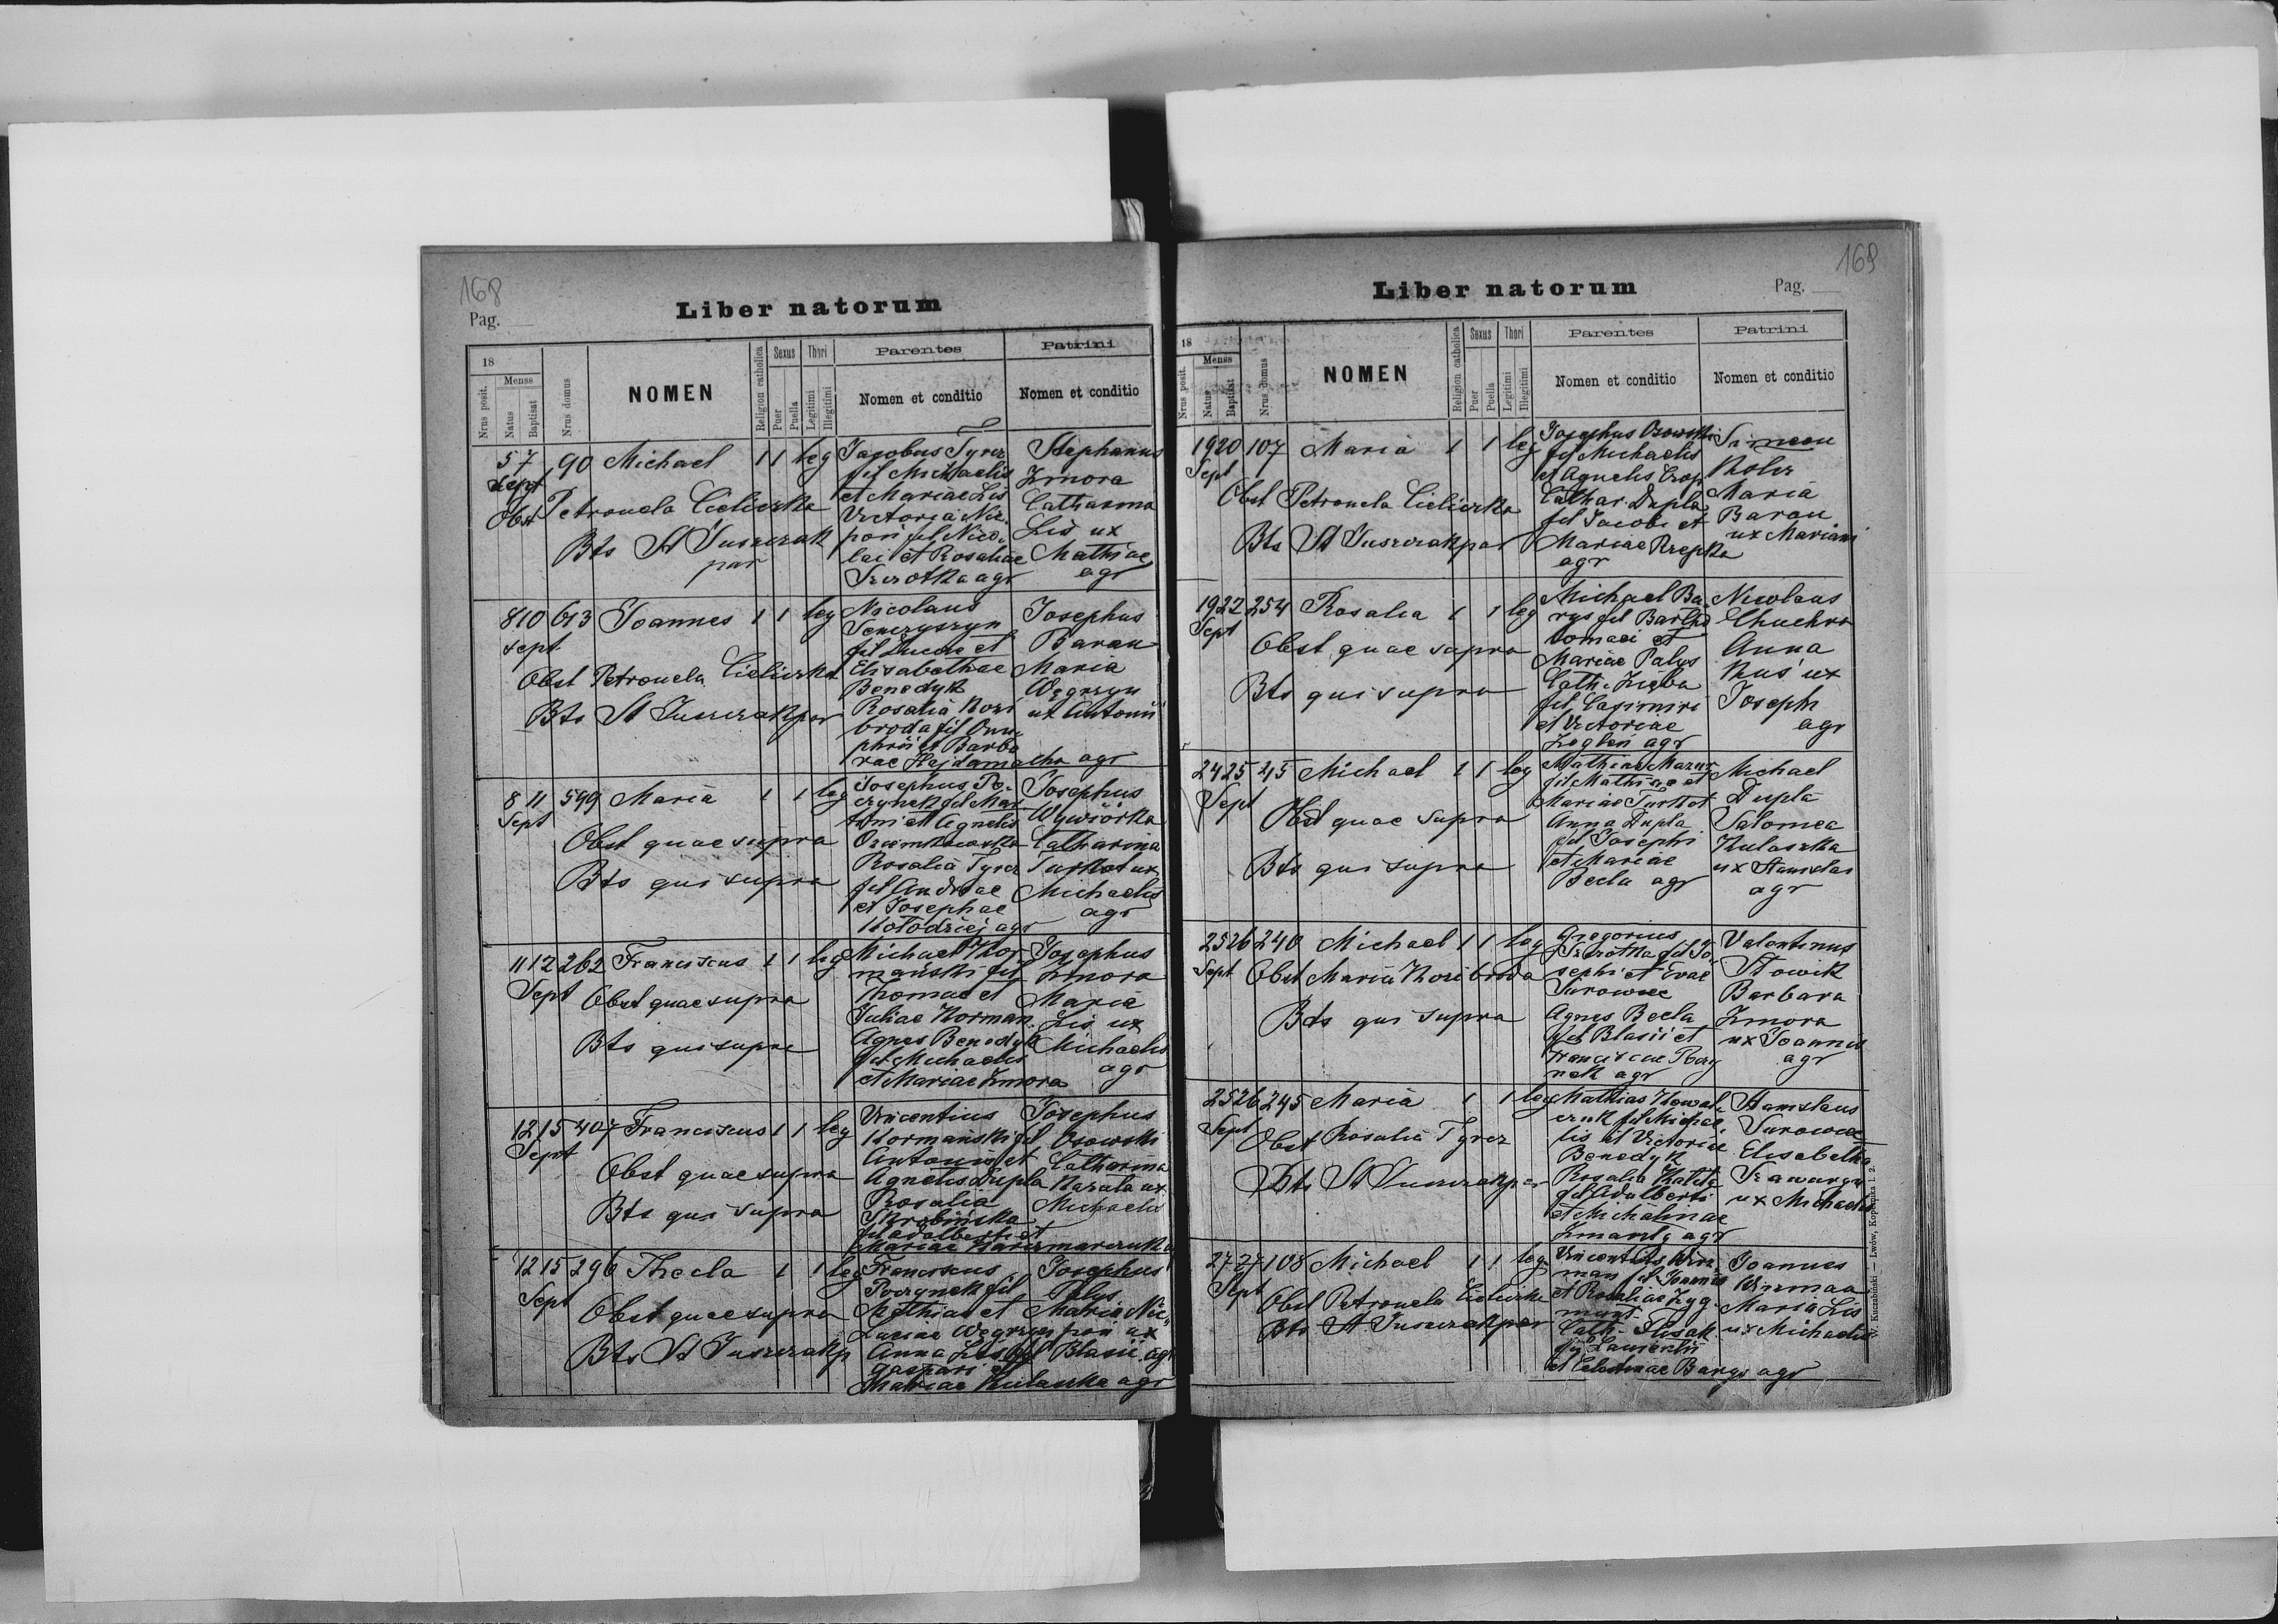 168
Pag.
Liber natorum
18
Nrus posit.
Mense
Natus
Baptisat
Nrus domus
NOMEN
Religion catholica
Sexus
Puer
Puella
Thori
Legitimi
Illegitimi
Parentes
Nomen et conditio
Patrini
Nomen et conditio
5 7 Sept 90 Michael 1 1 leg
Obst Petronela Cieliczka
Bts St Juszczak
par
Jacobus Tyrcz
fil Michaelis
et Mariae Lis
Victoria Nie-
poń fil Nico-
lai et Rosaliae
Szrotka agr
Stephanus
Zmora
Catharina
Lis ux
Mathiae
agr
8 10 Sept 613 Joannes 1 1 leg
Obst Petronela Cieliczka
Bts St Juszczak par
Nicolaus
fil Lucae et
Elisabethae
Benedyk
Rosalia Kozi
broda fil Onu
phrii et Barba
rae Hajdamacha agr
Josephus
Baran
Maria
Węgrzyn
ux Antonii
8 11 Sept 599 Maria 1 1 leg
Obst quae supra
Bts qui supra
Josephus Po-
czynek fil Mar
tini et Agnetis
Rosalia Tyrcz
fil Andreae
et Josephae
Kołodziej agr
Josephus
Wywiórka
Catharina
Turkot ux
Michaelis
agr
11 12 Sept 262 Franciscus 1 1 leg
Obst quae supra
Bts qui supra
Michael Kor-
mański fil
Thomae et
Juliae Korman
Agnes Benedyk
fil Michaelis
et Mariae Zmora
Josephus
Zmora
Maria
Lis ux
Michaelis
agr
12 15 Sept 407 Franciscus 1 1 leg
Obst quae supra
Bts qui supra
Vincentius
Kormański fil
Antonii et
Agnetis Dupla
Rosalia
Skrobińska
fil Adalberti et
Mariae Karczmarczuk
Josephus
Osowski
Catharina
Karala ux
Michaelis
12 15 Sept 296 Thecla 1 1 leg
Obst quae supra
Bts St Juszczak p
Franciscus
Poczynek fil
Mathiae et
Luciae Węgrzyn
Anna Lis fil
Gaspari et
Mariae Kulaszka agr
Josephus
Palys
Maria Nie-
poń ux
Blasii agr
169
Liber natorum
Pag.
18
Nrus posit.
Mense
Natus
Baptisat
Nrus domus
NOMEN
Religion catholica
Sexus
Puer
Puella
Thori
Legitimi
Illegitimi
Parentes
Nomen et conditio
Patrini
Nomen et conditio
19 20 Sept 107 Maria 1 1 leg
Obst Petronela Cieliczka
Bts St Juszczak par
Josephus Osowski
fil Michaelis
et Agnetis Czop
Cathar. Dupla
fil Jacobi et
Mariae Rzepka
agr
Simeon
Kolcz
Maria
Baran
ux Mariani
19 22 Sept 254 Rosalia 1 1 leg
Obst quae supra
Bts qui supra
Michael Ba-
rys fil Bartho
lomaei et
Mariae Palys
Cath. Zięba
fil Casimiri
et Victoriae
agr
Nicolaus
Chuchro
Anna
Kuś ux
Joseph
agr
24 25 Sept 45 Michael 1 1 leg
Obst quae supra
Bts qui supra
Mathias Mazur
fil Mathiae et
Mariae Turkot
Anna Dupla
fil Josephi
et Mariae
Becla agr
Michael
Dupla
Salomea
Kulaszka
ux Stanislai
agr
25 26 Sept 240 Michael 1 1 leg
Obst Maria Kozibroda
Bts qui supra
Gregorius
Szrotka fil Jo-
sephi et Evae
Surowiec
Agnes Becla
fil Blasii et
Franciscae Poczy
nek agr
Valentinus
Słowik
Barbara
Zmora
ux Joannis
agr
25 26 Sept 245 Maria 1 1 leg
Obst Rosalia Tyrcz
Bts St Juszczak par
Mathias Kowal-
czuk fil Michae-
lis et Victoriae
Benedyk
Rosalia Kalita
fil Adalberti
et Michalinae
agr
Stanislaus
Surowiec
Elisabetha
ux Michaelis
27 27 Sept 108 Michael 1 1 leg
Obst Petronela Cieliczka
Bts St Juszczak par
Vincentius Wirz
man fil Joannis
et Rosaliae Zyg-
munt
Cath. Flisak
fil Laurentii
et Celestinae Barys agr
Joannes
Wirzman
Maria Lis
ux Michaelis
W. Kuczabiński — Lwów, Kopernika l. 2.